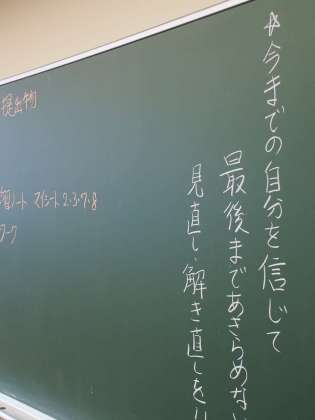 ☆今までの自分を信じて
最後まであきらめな
見直し、解き直しを
提出物
ノート マイシート2・3・7・8
ワーク